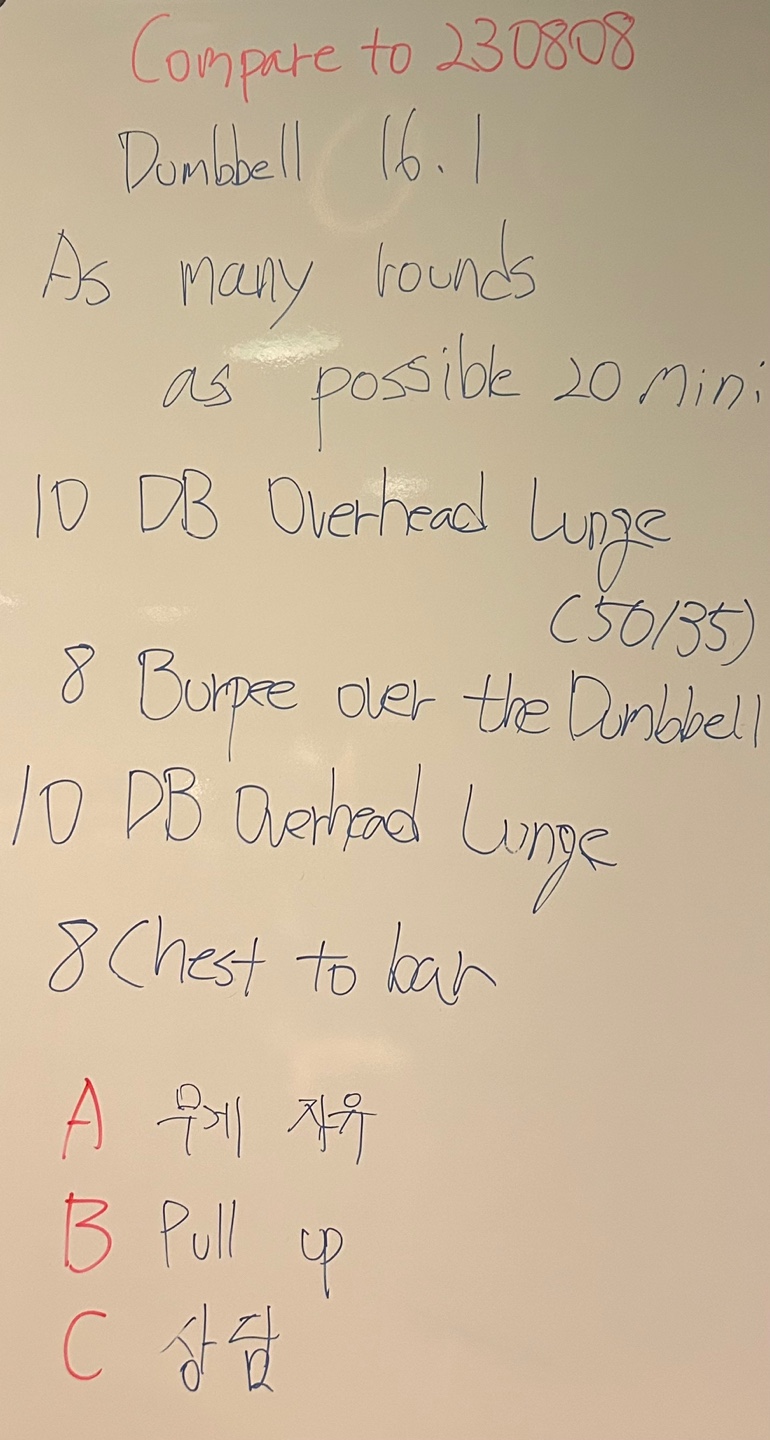 Compare to 230808
Dumbbell 16.1
As many rounds
as possible 20 min:
10 DB Overhead Lunge
(50/35)
8 Burpee over the Dumbbell
10 DB Overhead Lunge
8 Chest to bar
A 무게 자유
B Pull up
C 상담